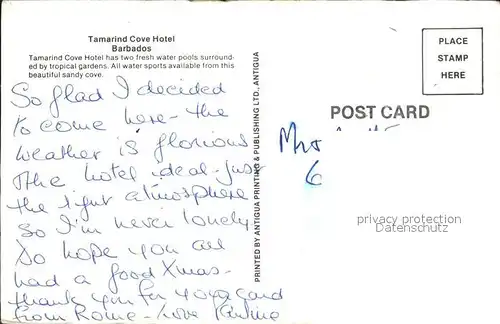 Tamarind Cove Hotel
Barbados
Tamarind Cove Hotel has two fresh water pools surround-
ed by tropical gardens. All water sports available from this
beautiful sandy cove.
So glad I decided
to come here - the
weather is glorious
& the hotel ideal - just
the right atmosphere
so I'm never lonely
Do hope you all
had a good Xmas -
thank you for your card
from Rome - Love
PRINTED BY ANTIGUA PRINTING & PUBLISHING LTD., ANTIGUA
PLACE
STAMP
HERE
POST CARD
Mrs
6
privacy protection
Datenschutz